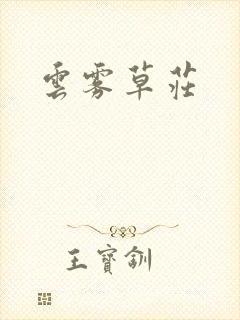 雲霧草莊
王寶釧